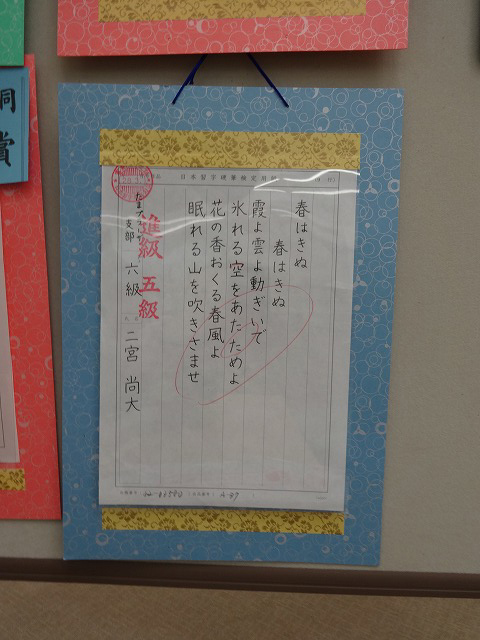 日本習字硬筆検定用紙
春はきぬ
春はきぬ
霞よ雲よ動ぎいで
氷れる空をあたためよ
花の香おくる春風よ
眠れる山を吹きさませ
進級 五級
支部 六級 二宮 尚大
銅賞